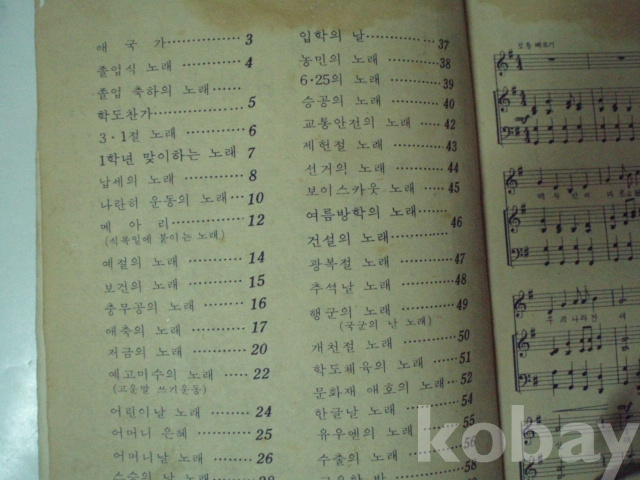 애 국 가 3
졸업식 노래 4
졸업 축하의 노래
학도찬가 5
3·1절 노래 6
1학년 맞이하는 노래 7
납세의 노래 8
나란히 운동의 노래 10
메 아 리 12
(식목일에 붙이는 노래)
예절의 노래 14
보건의 노래 15
충무공의 노래 16
애축의 노래 17
저금의 노래 20
예고미수의 노래 22
(고운말 쓰기운동)
어린이날 노래 24
어머니 은혜 25
어머니날 노래 26
스승의 날 노래 28
입학의 날 37
농민의 노래 38
6·25의 노래 39
승공의 노래 40
교통안전의 노래 42
제헌절 노래 43
선거의 노래 44
보이스카웃 노래 45
여름방학의 노래 46
건설의 노래
광복절 노래 47
추석날 노래 48
행군의 노래 49
(국군의 난 노래)
개천절 노래 50
학도체육의 노래 51
문화재 애호의 노래 52
한글날 노래 54
유우엔의 노래 55
수출의 노래 56
58
보통 빠르기
우 리 나 라
kobay